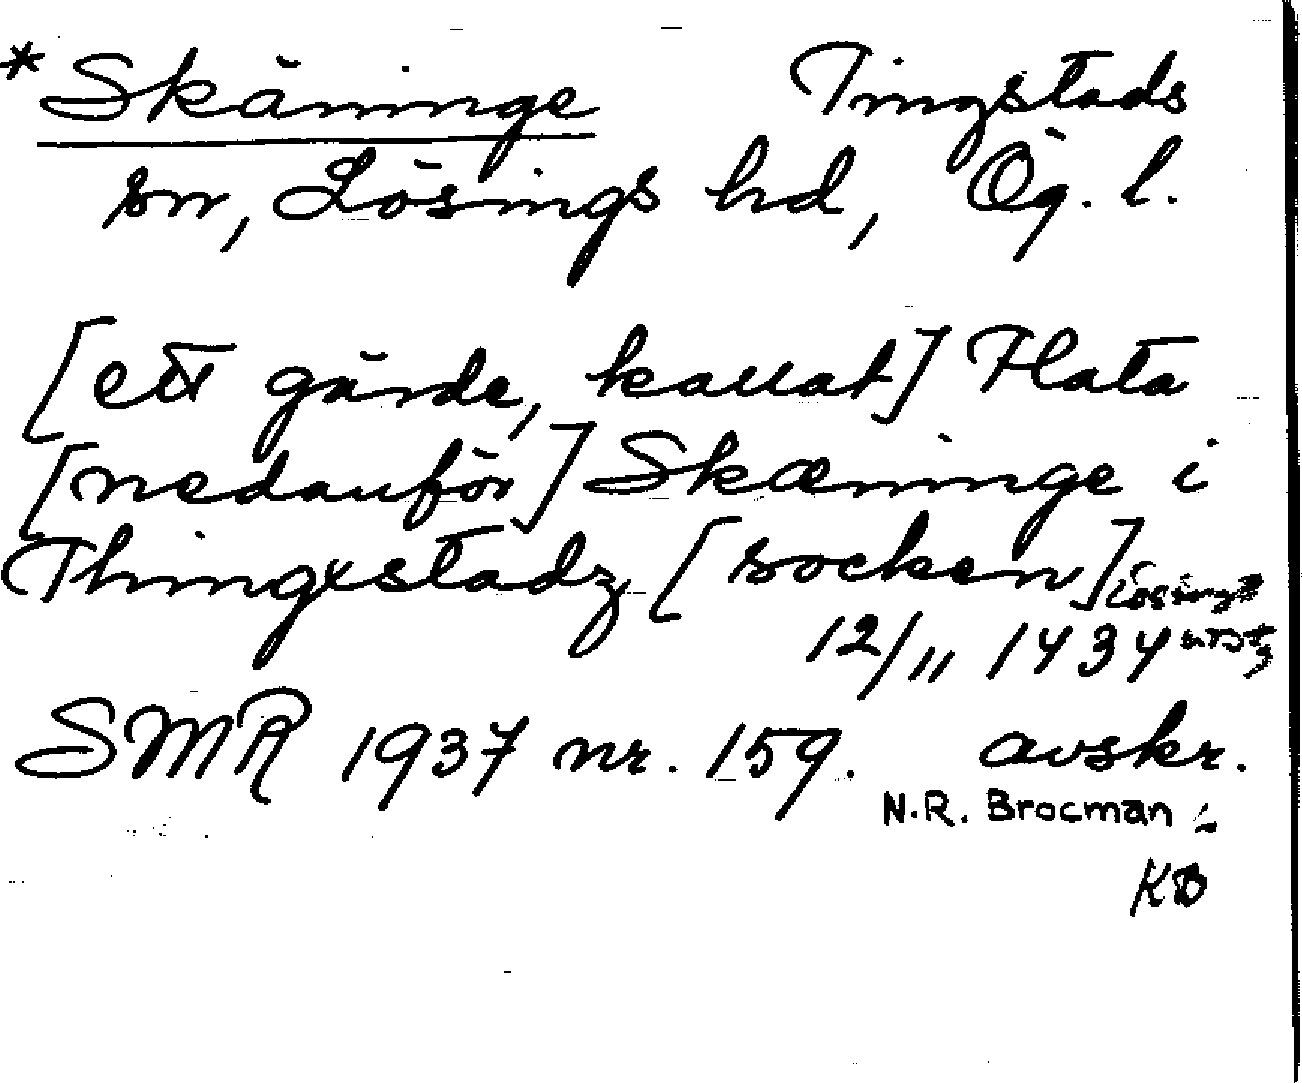 *Skäninge Tingstads
sn, Lösings hd, Ög. l.
[ett gärde, kallat] Flata
[nedanför] Skæninge i
Thingxstadz [socken]
12/11 1434
SMR 1937 nr. 159. avskr.
N.R. Brocman i
KB